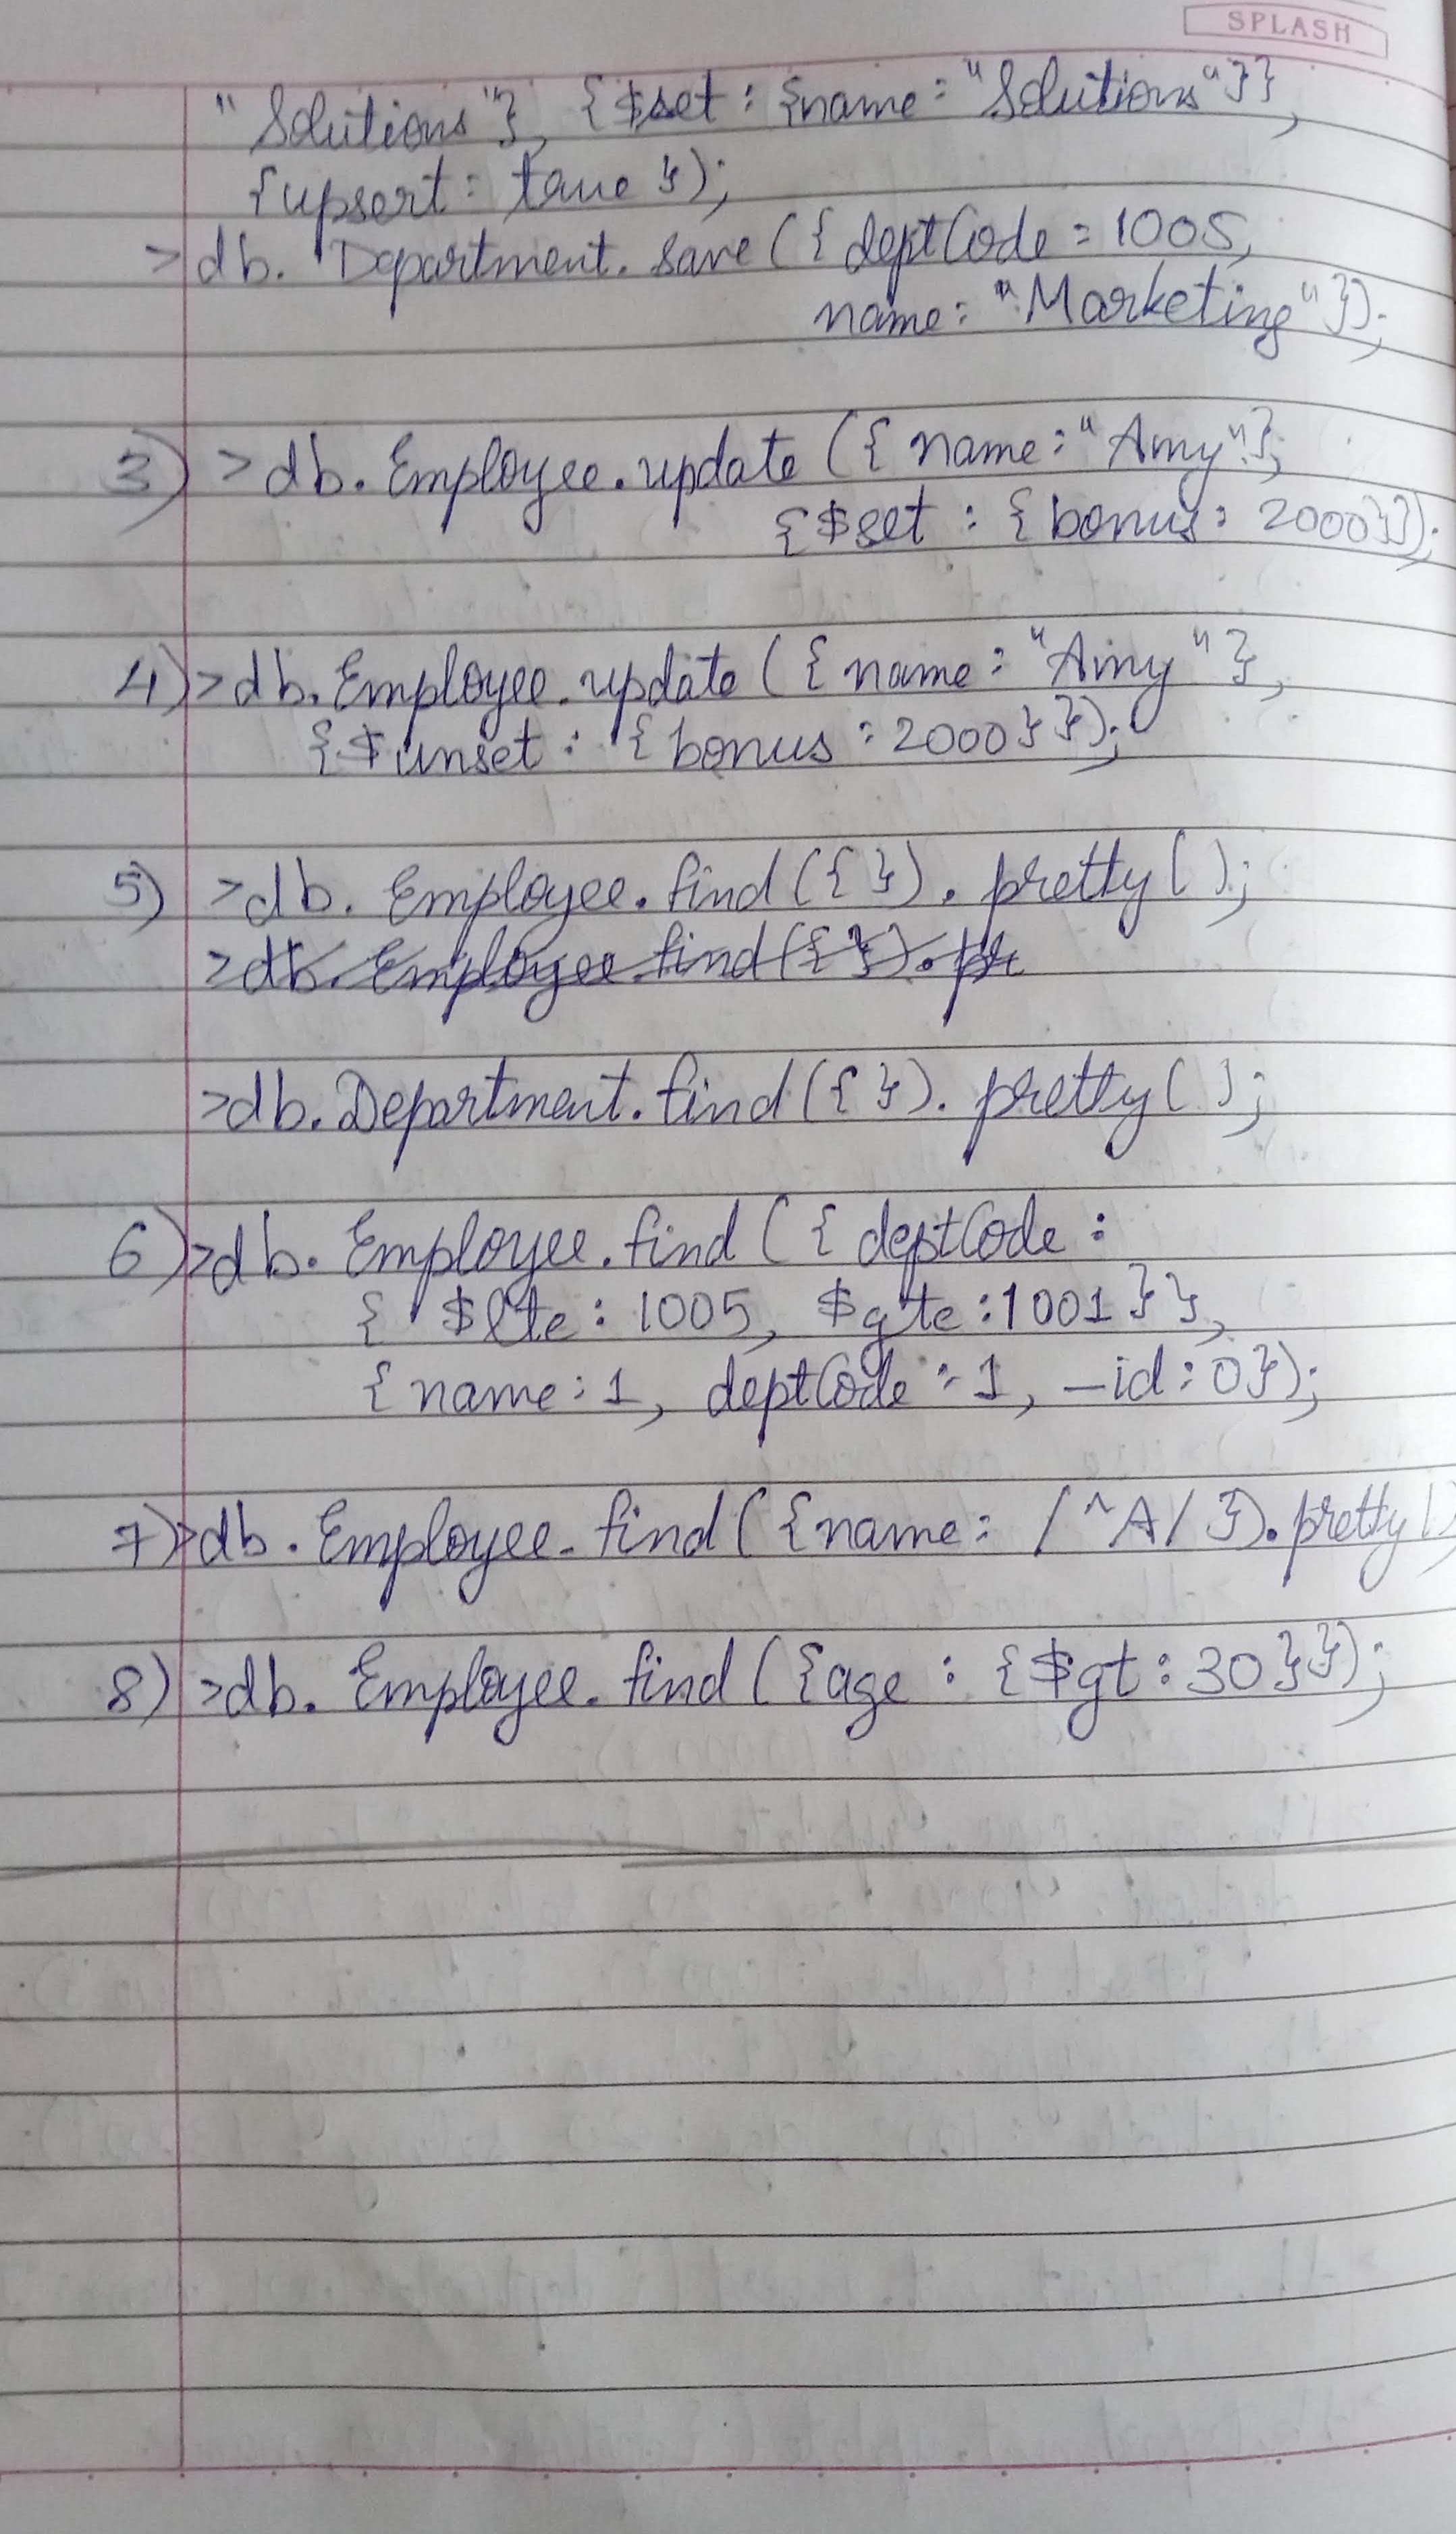 SPLASH
"Solutions"}, {$set : {name : "Solutions"}},
{upsert : true });
> db. Department. save ({ deptCode = 1005,
name: "Marketing"});
3) > db. Employee. update ({ name : "Amy"},
{$set : { bonus : 2000}});
4) > db. Employee. update ({ name : "Amy "},
{$ unset : { bonus : 2000}});
5) > db. Employee. find ({ }). pretty ( );
> db. Employee. find ({ }). pr
> db. Department. find ({ }). pretty ( );
6) > db. Employee. find ({ deptCode :
{ $lte : 1005, $gte : 1001 }},
{ name : 1, deptCode : 1, _id : 0});
7) > db. Employee. find ({name : / ^A/ }). pretty ()
8) > db. Employee. find ({age : {$gt : 30}});